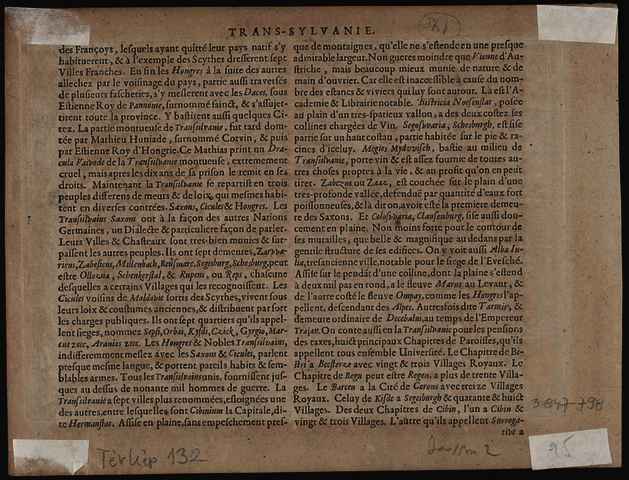 TRANS-SYLVANIE.
des Françoys, lesquels ayant quitté leur pays natif s'y
habituerent, & à l'exemple des Scythes dresserent sept
Villes Franches. En fin les Hongres à la suite des autres
allechez par le voisinage du pays, partie aussi travessés
de plusieurs fascheries, s'y meslerent avec les Daces, sous
Estienne Roy de Pannonie, surnommé sainct, & s'assujet-
tirent toute la province. Y bastirent aussi quelques Ci-
tez. La partie montueuse de Transilvanie, fut tard dom-
tée par Mathieu Huniade, surnommé Corvin, & puis
par Estienne Roy d'Hongrie. Ce Mathias print un Dra-
cula Vaivode de la Transilvanie montueuse, extremement
cruel, mais apres les dix ans de sa prison le remit en ses
droits. Maintenant la Transilvanie se repartist en trois
peuples differens de meurs & de loix, qui mesmes habi-
tent en diverses contrées. Saxons, Cicules & Hongres. Les
Transilvains Saxons ont à la façon des autres Nations
Germaines, un Dialecte & particuliere façon de parler.
Leurs Villes & Chasteaux sont tres-bien munies & sur-
passent les autres peuples. Ils ont sept demeures, Zarwa-
ricens, Zabesiens, Millenbach, Reissmare, Segesuar, Schesburg, peut
estre Olkezna, Schenkerstal, & Rupens, ou Reps, chascune
desquelles a certains Villages qui les recognoissent. Les
Cicules voisins de Moldavie sortis des Scythes, vivent sous
leurs loix & coustumes anciennes, & distribuent par sort
les charges publiques. Ils ont sept quartiers qu'ils appel-
lent sieges, nommez Sepsi, Orbai, Kysdi, Czick, Gyrgio, Mar-
cus zeec, Aranios zeec. Les Hongres & Nobles Transilvains,
indifferemment meslez avec les Saxons & Cicules, parlent
presque mesme langue, & portent pareils habits & sem-
blables armes. Tous les Transilvains unis, fournissent jus-
ques au dessus de nonante mil hommes de guerre. La
Transilvanie a sept villes plus renommées, esloignées une
des autres, entre lesquelles sont Cibinium la Capitale, di-
te Hermanstat. Assise en plaine, sans empeschement pres-
que de montaignes, qu'elle ne s'estende en une presque
admirable largeur. Non guerres moindre que Vienne d'Au-
striche, mais beaucoup mieux munie de nature & de
main d'ouvrier. Car elle est inaccessible à cause du nom-
bre des estancs & viviers qui luy sont autour. Là est l'A-
cademie & Librairie notable. Bistricia Noesenstat, posée
au plain d'un tres-spatieux vallon, a des deux costez ses
collines chargées de Vin. Segesvaria, Schesburgh, est sise
partie sur un haut costau, partie habitée sur le pie & ra-
cines d'iceluy. Megies Mydwisch, bastie au milieu de
Transilvanie, porte vin & est assez fournie de toutes au-
tres choses propres à la vie, & au profit qu'on en peut
tirer. Zabezus ou Zaaz, est couchée sur le plain d'une
tres-profonde vallée, defendue par quantité d'eaux fort
poissonneuses, & là dit on, avoir esté la premiere demeu-
re des Saxons. Et Colosvaria, Clausenburg, sise aussi dou-
cement en plaine. Non moins forte pour le contour de
ses murailles, que belle & magnifique au dedans par la
gentille structure de ses edifices. On y voit aussi Alba Iu-
lia, tresancienne ville, notable pour le siege de l'Evesché.
Assise sur le pendât d'une colline, dont la plaine s'estend
à deux mil pas en rond, a le fleuve Marus au Levant, &
de l'autre costé le fleuve Ompay, comme les Hongres l'ap-
pellent, descendant des Alpes. Autresfois dite Tarmis, &
demeure ordinaire de Decebalus, au temps de l'Empereur
Trajan. On conte aussi en la Transilvanie pour les pensions
des taxes, huict principaux Chapitres de Paroisses, qu'ils
appellent tous ensemble Université. Le Chapitre de Be-
stri à Besterza avec vingt & trois Villages Royaux. Le
Chapitre de Regn peut estre Regen, a plus de trente Villa-
ges. Le Barcen a la Cité de Corona avec treize Villages
Royaux. Celuy de Kisde a Segesburgh & quarante & huict
Villages. Des deux Chapitres de Cibin, l'un a Cibin &
vingt & trois Villages. L'autre qu'ils appellent Surroga-
tive a
3.847-798
Térkép 132
Jansson 2
95